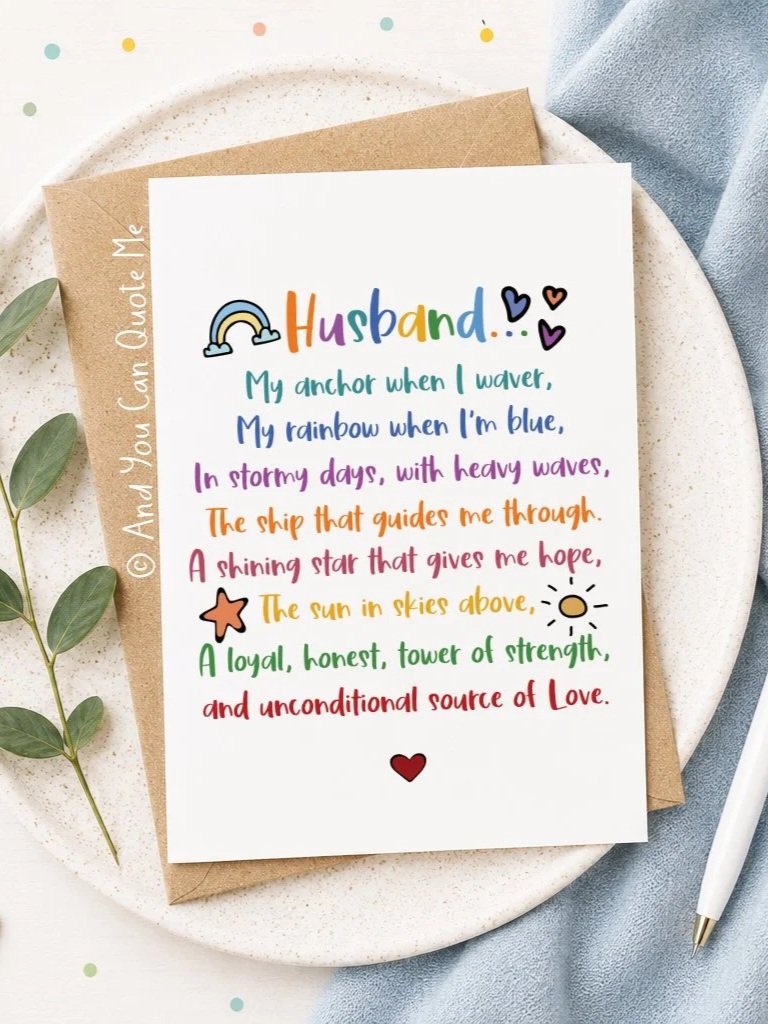 Husband...
My anchor when I waver,
My rainbow when I'm blue,
In stormy days, with heavy waves,
The ship that guides me through.
A shining star that gives me hope,
The sun in skies above,
A loyal, honest, tower of strength,
and unconditional source of Love.
© And You Can Quote Me